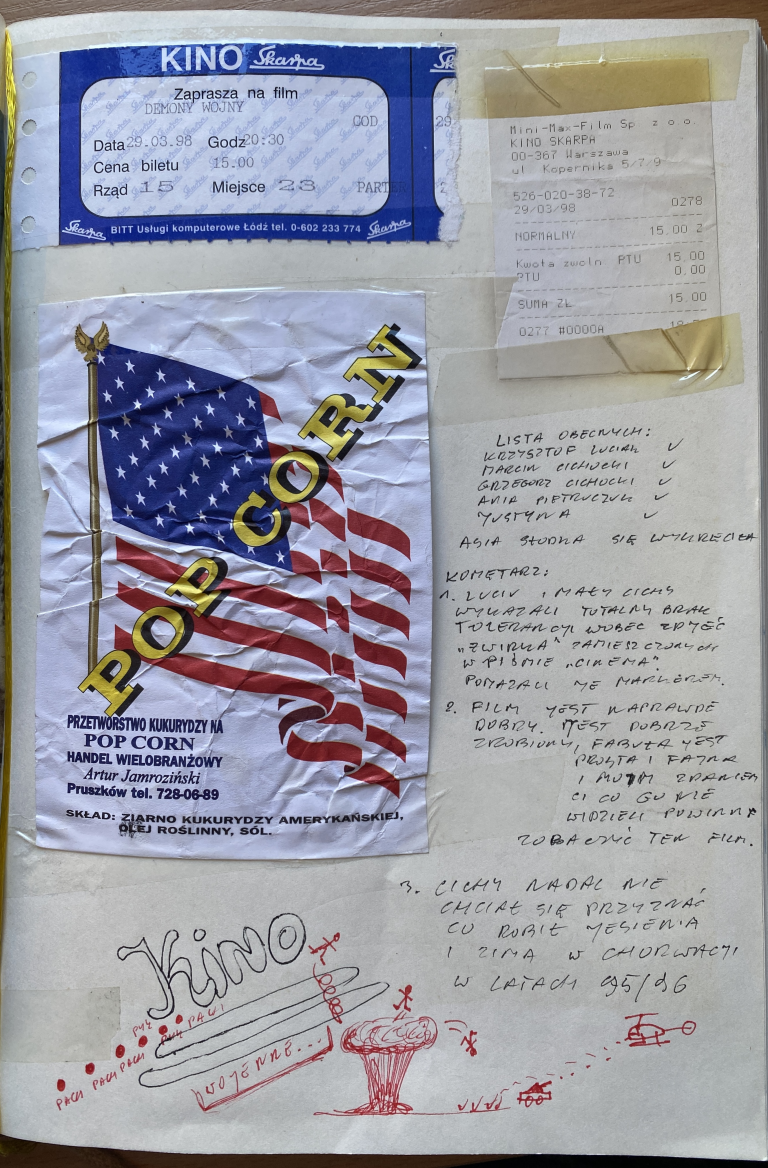 KINO Skarpa
Zaprasza na film
DEMONY WOJNY
GOD
Data 29.03.98 Godz 20:30
Cena biletu 15.00
Rząd 15 Miejsce 23 PARTER
Skarpa BITT Usługi komputerowe Łódź tel. 0-602 233 774 Skarpa
Sk
29
2
Mini-Max-Film Sp z o.o.
KINO SKARPA
00-367 Warszawa
ul Kopernika 5/7/9
526-020-38-72
29/03/98 0278
NORMALNY 15.00 Z
Kwota zwoln PTU 15.00
PTU 0.00
SUMA ZŁ 15.00
0277 #0000A
POP CORN
PRZETWORSTWO KUKURYDZY NA
POP CORN
HANDEL WIELOBRANŻOWY
Artur Jamroziński
Pruszków tel. 728-06-89
SKŁAD: ZIARNO KUKURYDZY AMERYKAŃSKIEJ,
OLEJ ROŚLINNY, SÓL.
LISTA OBECNYCH:
KRZYSZTOF LUCIAK ✓
MARCIN CICHOCKI ✓
GRZEGORZ CICHOCKI ✓
ANIA PIETRUCZUK ✓
JUSTYNA ✓
ASIA SŁODKA SIĘ WYKRĘCIŁA
KOMETARZ:
1. LUCIU I MAŁY CICHY
WYKAZALI TOTALNY BRAK
TOLERANCJI WOBEC ZDJĘĆ
„ŻWIRKA" ZAMIESZCZONYCH
W PIŚMIE „CINEMA".
POMAZALI JE MARKEREM.
2. FILM JEST NAPRAWDĘ
DOBRY. JEST DOBRZE
ZROBIONY, FABUŁA JEST
PROSTA I FAJNA
I MOIM ZDANIEM
CI CO GO NIE
WIDZIELI POWINNI
ZOBACZYĆ TEN FILM.
3. CICHY NADAL NIE
CHCIAŁ SIĘ PRZYZNAĆ
CO ROBIŁ JESIENIĄ
I ZIMĄ W CHORWACJI
W LATACH 95/96
KINO
WOJENNE...
PACH PACH PACH PACH